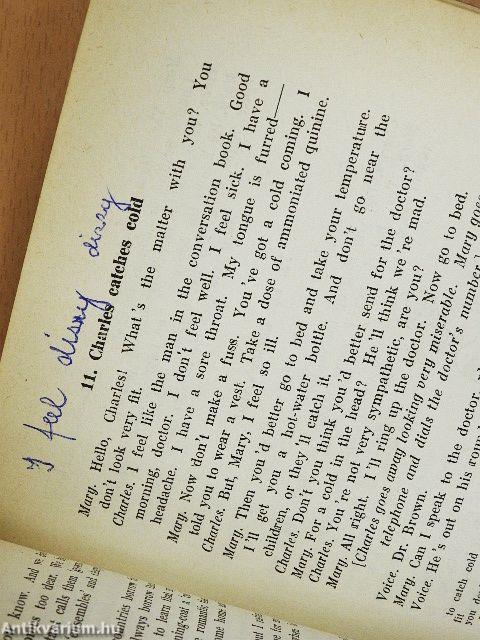 I feel dissny dissy
11. Charles catches cold
Mary. Hello, Charles! What's the matter with you? You
don't look very fit.
Charles. I feel like the man in the conversation book. Good
morning, doctor. I don't feel well. I feel sick. I have a
headache. I have a sore throat. My tongue is furred—
Mary. Now don't make a fuss. You've got a cold coming. I
told you to wear a vest. Take a dose of ammoniated quinine.
Charles. But, Mary, I feel so ill.
Mary. Then you'd better go to bed and take your temperature.
I'll get you a hot-water bottle. And don't go near the
children, or they'll catch it.
Charles. Don't you think you'd better send for the doctor?
Mary. For a cold in the head? He'll think we're mad.
Charles. You're not very sympathetic, are you?
Mary. All right. I'll ring up the doctor. Now go to bed.
[Charles goes away looking very miserable. Mary goes
telephone and dials the doctor's number.]
Voice. Dr. Brown.
Mary. Can I speak to the doctor,
Voice. He's out on his
to catch cold
fit
know. And
too dear.
calls them
sembles' and
borrow
ways borrow
to learn
romantic
Antikvárium.hu